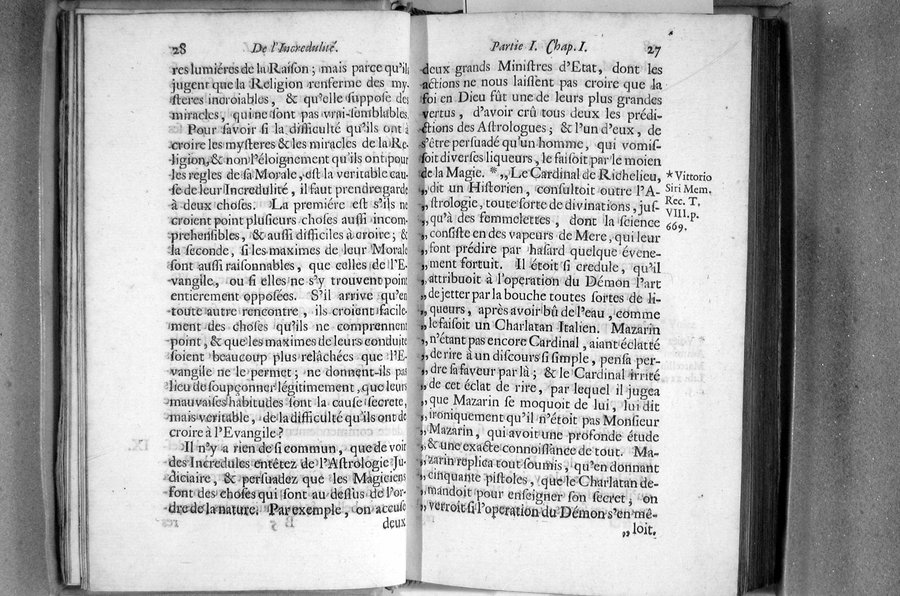 28 De l'Incredulité.
res lumiéres de la Raison ; mais parce qu'ils
jugent que la Religion renferme des my-
steres incroiables, & qu'elle suppose des
miracles, qui ne sont pas vrai-semblables.
Pour savoir si la difficulté qu'ils ont à
croire les mysteres & les miracles de la Re-
ligion, & non l'éloignement qu'ils ont pour
les regles de sa Morale, est la veritable cau-
se de leur Incredulité, il faut prendre garde
à deux choses. La premiére est s'ils ne
croient point plusieurs choses aussi incom-
prehensibles, & aussi difficiles à croire ; &
la seconde, si les maximes de leur Morale
sont aussi raisonnables, que celles de l'E-
vangile, ou si elles ne s'y trouvent point
entierement opposées. S'il arrive qu'en
toute autre rencontre, ils croient facile-
ment des choses qu'ils ne comprennent
point, & que les maximes de leur conduite
soient beaucoup plus relâchées que l'E-
vangile ne le permet ; ne donnent-ils pas
lieu de soupçonner légitimement, que leurs
mauvaises habitudes sont la cause secrete,
mais veritable, de la difficulté qu'ils ont de
croire à l'Evangile ?
Il n'y a rien de si commun, que de voir
des Incredules entêtez de l'Astrologie Ju-
diciaire, & persuadez que les Magiciens
font des choses qui sont au dessus de l'or-
dre de la nature. Par exemple, on accuse
deux
Partie I. Chap. I. 27
deux grands Ministres d'Etat, dont les
actions ne nous laissent pas croire que la
foi en Dieu fût une de leurs plus grandes
vertus, d'avoir crû tous deux les prédi-
ctions des Astrologues ; & l'un d'eux, de
s'être persuadé qu'un homme, qui vomis-
soit diverses liqueurs, le faisoit par le moien
de la Magie. * „ Le Cardinal de Richelieu,
„ dit un Historien, consultoit outre l'A-
„ strologie, toute sorte de divinations, jus-
„ qu'à des femmelettes, dont la science
„ consiste en des vapeurs de Mere, qui leur
„ font prédire par hasard quelque évene-
„ ment fortuit. Il étoit si credule, qu'il
„ attribuoit à l'operation du Démon l'art
„ de jetter par la bouche toutes sortes de li-
„ queurs, après avoir bû de l'eau, comme
„ le faisoit un Charlatan Italien. Mazarin
„ n'étant pas encore Cardinal, aiant éclatté
„ de rire à un discours si simple, pensa per-
„ dre sa faveur par là ; & le Cardinal irrité
„ de cet éclat de rire, par lequel il jugea
„ que Mazarin se moquoit de lui, lui dit
„ ironiquement qu'il n'étoit pas Monsieur
„ Mazarin, qui avoit une profonde étude
„ & une exacte connoissance de tout. Ma-
„ zarin replica tout soumis, qu'en donnant
„ cinquante pistoles, que le Charlatan de-
„ mandoit pour enseigner son secret ; on
„ verroit si l'operation du Démon s'en mê-
„ loit.
* Vittorio
Siri Mem.
Rec. T.
VIII. p.
669.